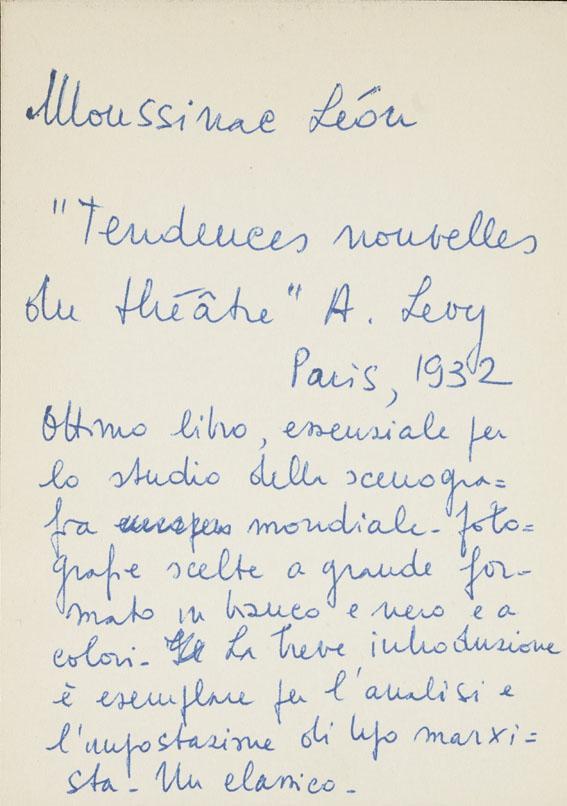 Moussinac Léon
"Tendences nouvelles
du théâtre" A. Levy
Paris, 1932
Ottimo libro, essenziale per
lo studio della scenogra=
fia mondiale - foto=
grafie scelte a grande for-
mato in bianco e nero e a
colori - La breve introduzione
è esemplare per l'analisi e
l'impostazione di tipo marxi=
sta - Un classico -